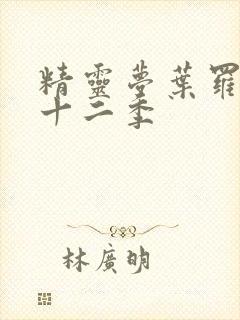 精靈夢葉羅
十二季
林廣明